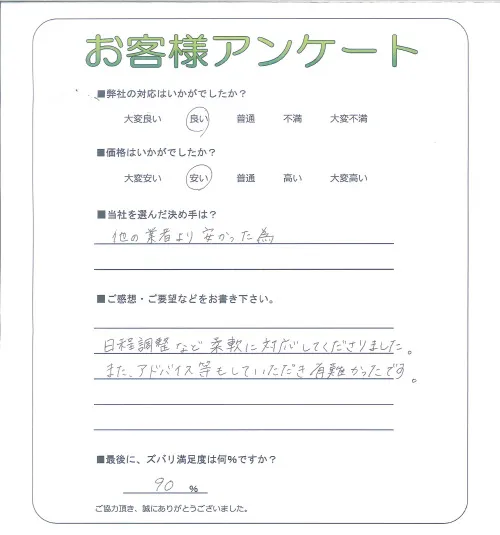 お客様アンケート
■弊社の対応はいかがでしたか？
大変良い 良い 普通 不満 大変不満
■価格はいかがでしたか？
大変安い 安い 普通 高い 大変高い
■当社を選んだ決め手は？
他の業者より安かった為
■ご感想・ご要望などをお書き下さい。
日程調整など柔軟に対応してくださりました。
また、アドバイス等もしていただき有難かったです。
■最後に、ズバリ満足度は何%ですか？
90 %
ご協力頂き、誠にありがとうございました。